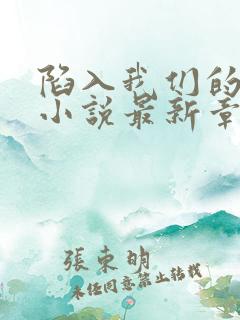 陷入我们的
小說最新章
張東明
未經同意禁止轉載